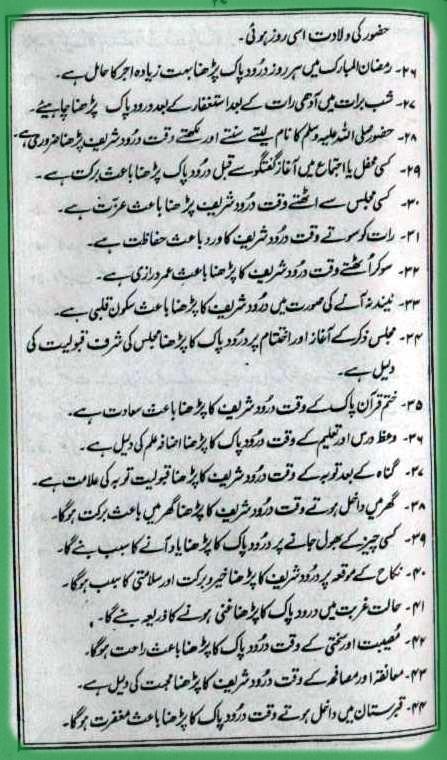 حضور کی ولادت اسی روز ہوئی۔
۲۶۔ رمضان المبارک میں ہر روز درود پاک پڑھنا بہت زیادہ اجر کا حامل ہے۔
۲۷۔ شب برات میں آدھی رات کے بعد استغفار کے بعد درود پاک پڑھنا چاہیئے۔
۲۸۔ حضور صلی اللہ علیہ وسلم کا نام لیتے سنتے اور لکھتے وقت درود شریف پڑھنا ضروری ہے۔
۲۹۔ کسی محفل یا اجتماع میں آغاز گفتگو سے قبل درود پاک پڑھنا باعث برکت ہے۔
۳۰۔ کسی مجلس سے اٹھتے وقت درود شریف پڑھنا باعث عزت ہے۔
۳۱۔ رات کو سوتے وقت درود شریف کا ورد باعث حفاظت ہے۔
۳۲۔ سو کر اٹھتے وقت درود شریف کا پڑھنا باعث عمر درازی ہے۔
۳۳۔ نیند نہ آنے کی صورت میں درود شریف کا پڑھنا باعث سکون قلبی ہے۔
۳۴۔ مجلس ذکر کے آغاز اور اختتام پر درود پاک کا پڑھنا مجلس کی شرف قبولیت کی
دلیل ہے۔
۳۵۔ ختم قرآن پاک کے وقت درود شریف کا پڑھنا باعث سعادت ہے۔
۳۶۔ وعظ درس اور تعلیم کے وقت درود پاک کا پڑھنا اضافہ علم کی دلیل ہے۔
۳۷۔ گناہ کے بعد توبہ کے وقت درود شریف کا پڑھنا قبولیت توبہ کی علامت ہے۔
۳۸۔ گھر میں داخل ہوتے وقت درود شریف کا پڑھنا گھر میں باعث برکت ہوگا۔
۳۹۔ کسی چیز کے بھول جانے پر درود پاک کا پڑھنا یاد آنے کا سبب بنے گا۔
۴۰۔ نکاح کے موقعہ پر درود شریف کا پڑھنا خیر و برکت اور سلامتی کا سبب ہوگا۔
۴۱۔ حالت غربت میں درود پاک کا پڑھنا غنی ہونے کا ذریعہ بنے گا۔
۴۲۔ مصیبت اور سختی کے وقت درود پاک کا پڑھنا باعث راحت ہوگا۔
۴۳۔ معانقہ اور مصافحہ کے وقت درود شریف کا پڑھنا محبت کی دلیل ہے۔
۴۴۔ قبرستان میں داخل ہوتے وقت درود پاک کا پڑھنا باعث مغفرت ہوگا۔